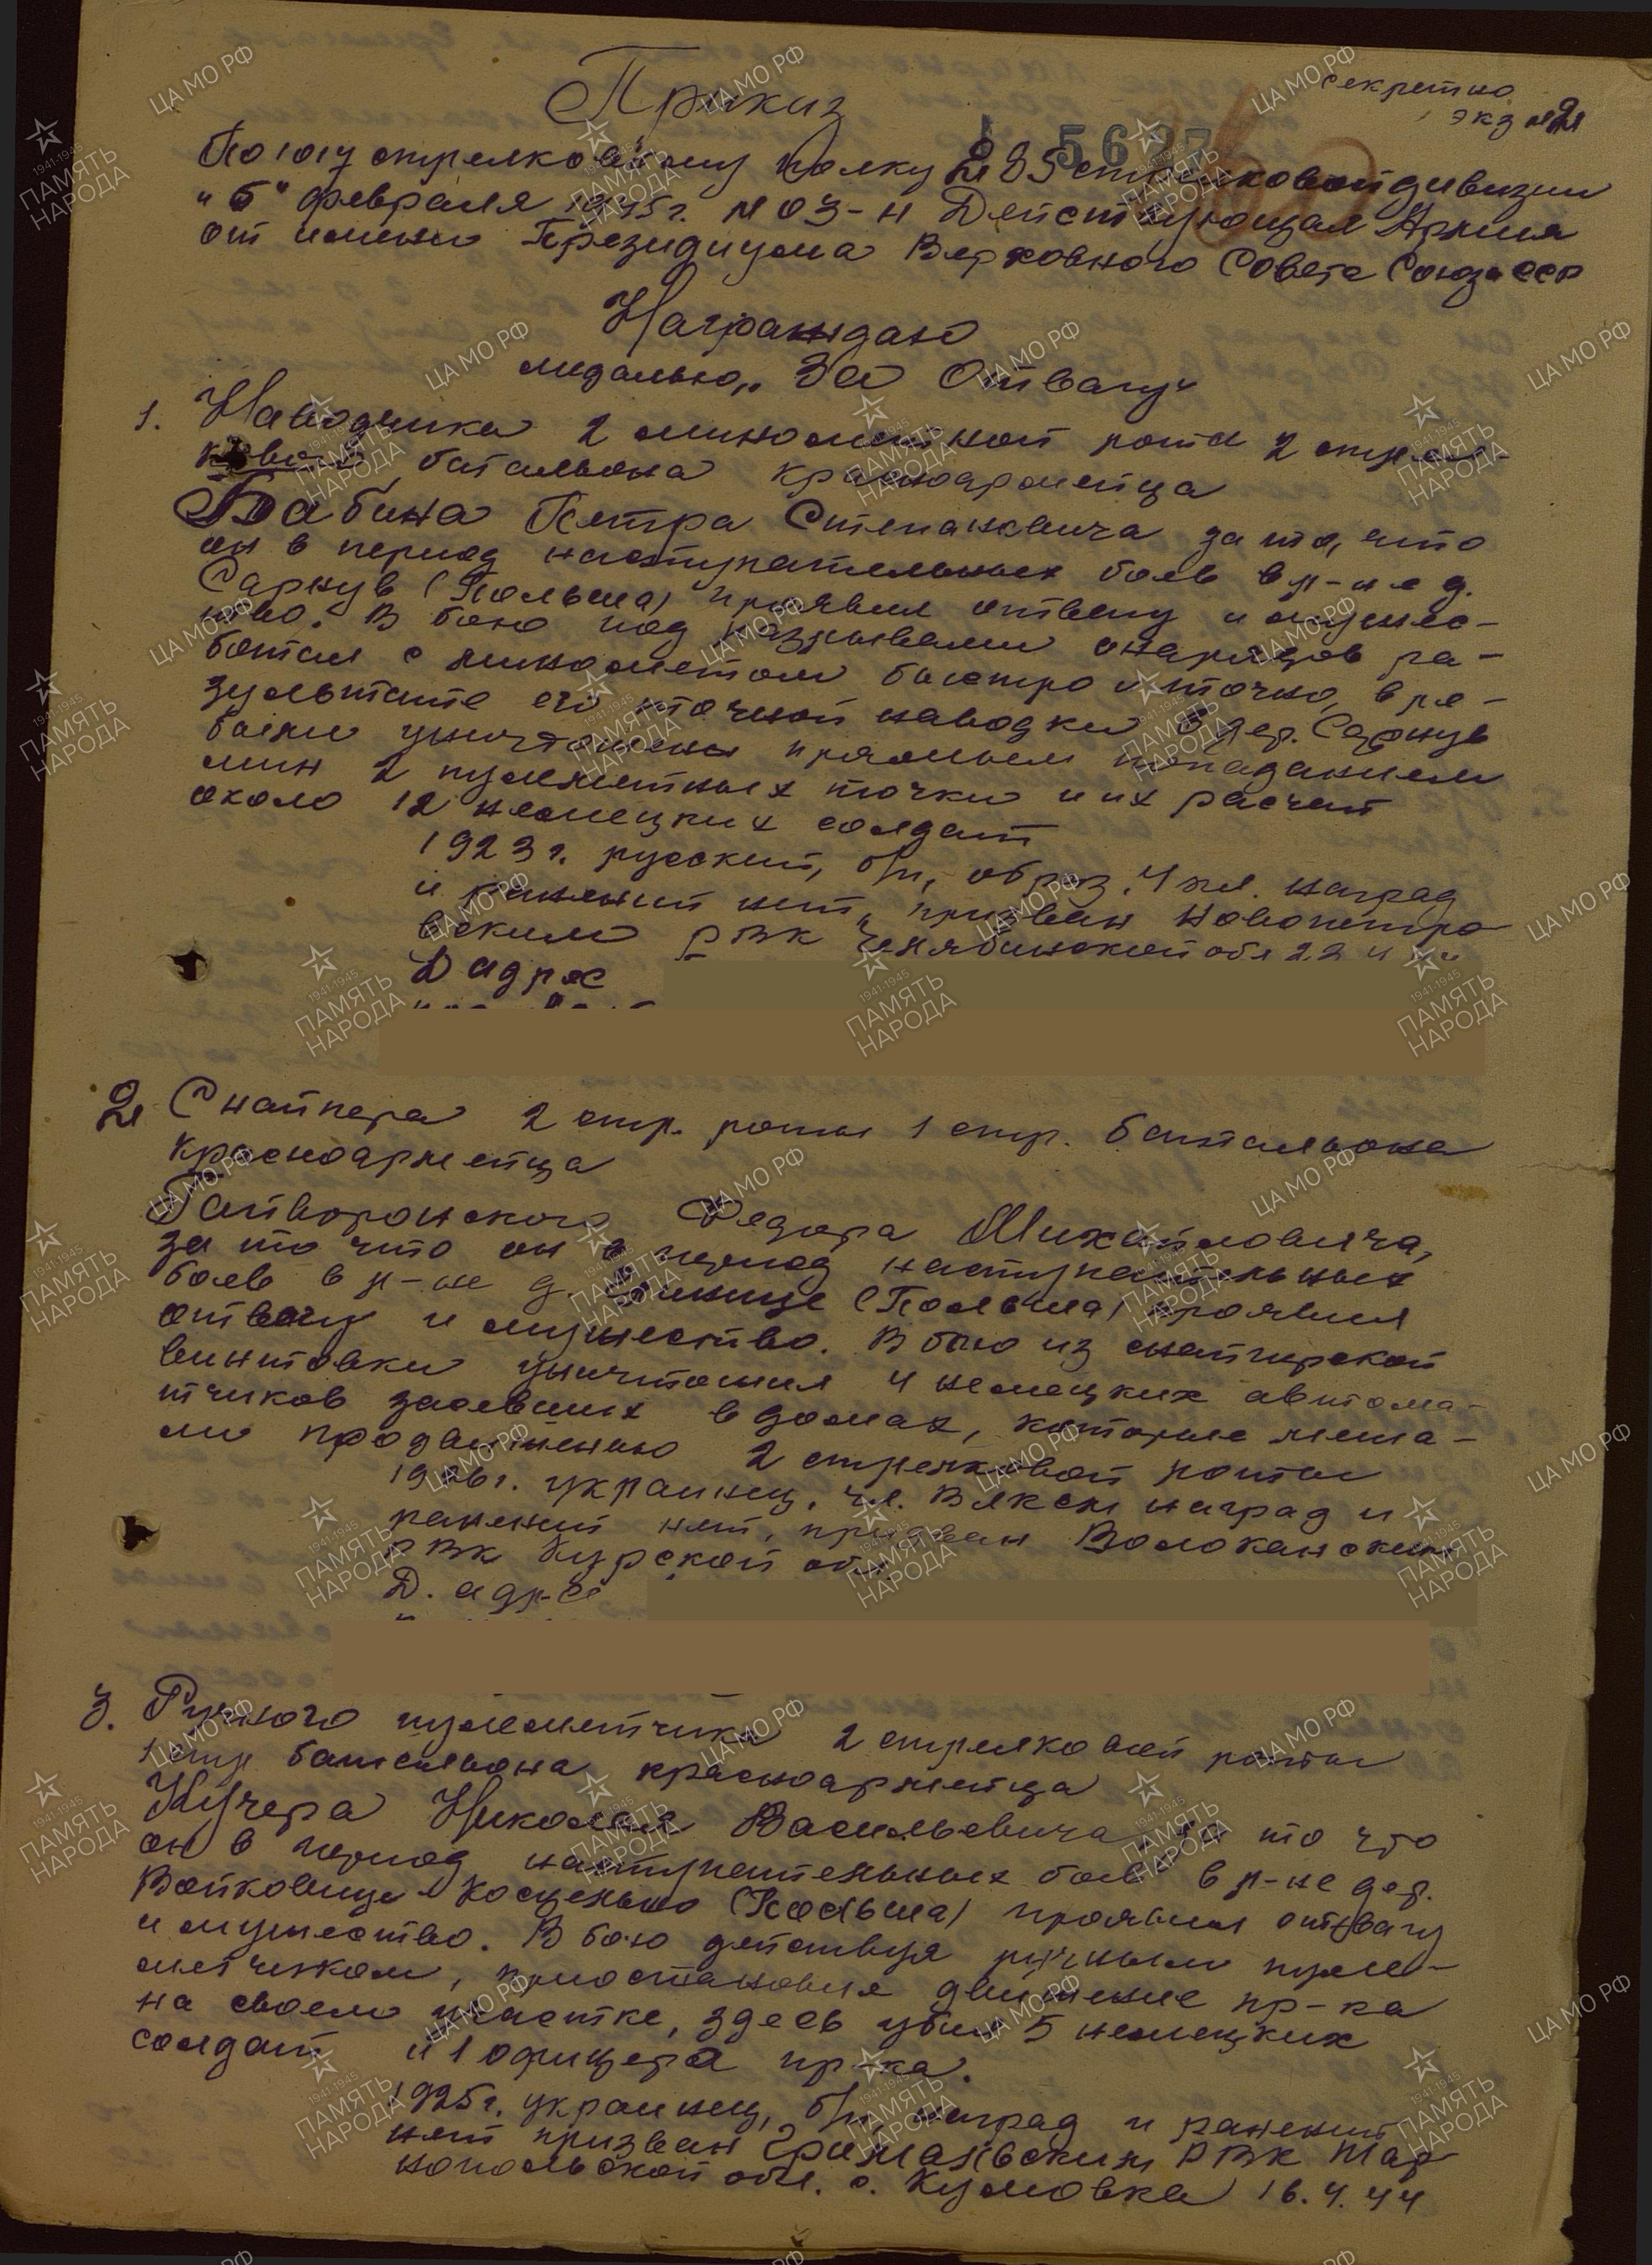 Секретно
экз №2
Приказ
5627
По 1017 стрелковому полку 285 стрелковой дивизии
"6" февраля 1945 г. № 03-н Действующая Армия
от имени Президиума Верховного Совета Союза ССР
Награждаю
медалью „За Отвагу"
1. Наводчика 2 минометной роты 2 стрел-
кового батальона красноармейца
Бабина Петра Степановича за то, что
он в период наступательных боев в р-не д.
Сарнув (Польша) проявил отвагу и мужес-
тво. В бою под разрывами снарядов ра-
ботал с минометом быстро и точно, в ре-
зультате его точной наводки в дер. Сарнув
были уничтожены прямым попаданием
мин 2 пулеметных точки и их расчет
около 12 немецких солдат
1923 г. русский, б/п, образ. 4 кл. наград
и ранений нет, призван Новопетро
вским РВК Челябинской обл
Д адрес
2 Снайпера 2 стр. роты 1 стр. батальона
красноармейца
Гайворонского Федора Михайловича,
за то что он в период наступательных
боев в р-не д. (Польша) проявил
отвагу и мужество. В бою из снайперской
винтовки уничтожил 4 немецких автома-
тчиков засевших в домах, которые меша-
ли продвижению 2 стрелковой роты
1926 г. украинец, чл. ВЛКСМ наград и
ранений нет, призван Волоканским
РВК Курской обл.
Д. адрес
3. Ручного пулеметчика 2 стрелковой роты
1 стр батальона красноармейца
Кучера Николая Васильевича за то что
он в период наступательных боев в р-не дер.
Войковице Косцельно (Польша) проявил отвагу
и мужество. В бою действуя ручным пуле-
метчиком, приостановил движение пр-ка
на своем участке, здесь убил 5 немецких
солдат и 1 офицера пр-ка.
1925 г. украинец, б/п, наград и ранений
нет призван Гримайловским РВК Тар
нопольской обл. с. Кумовка 16.4.44